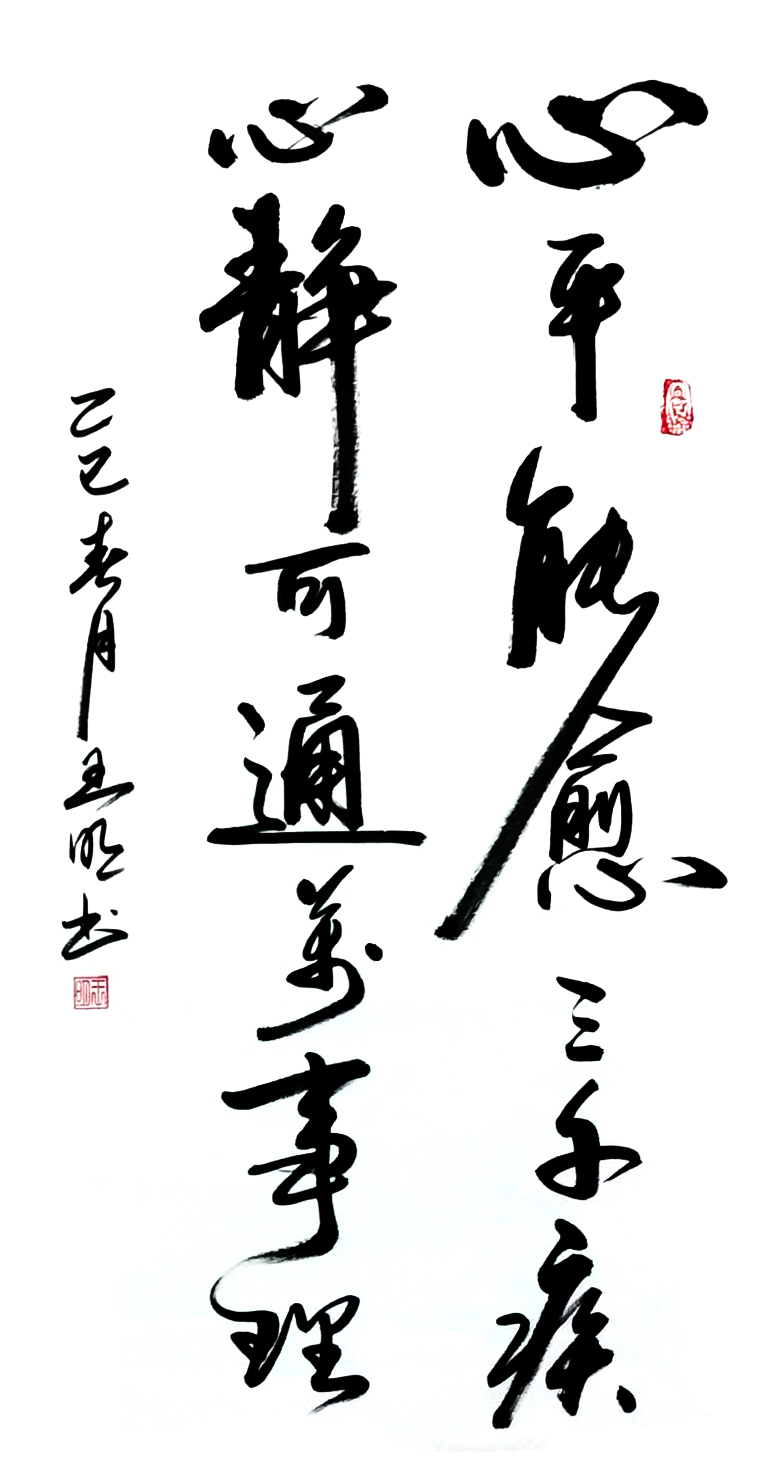 心平能愈三千疾
心静可通萬事理
乙巳春月王明书
王明